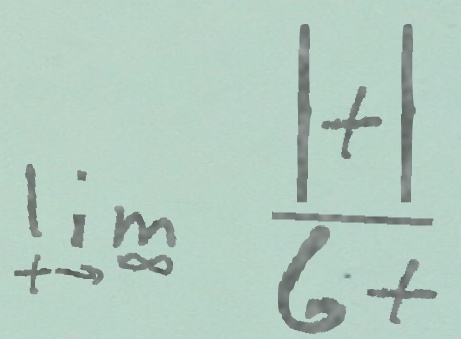 lim t→∞ |t| / 6·t